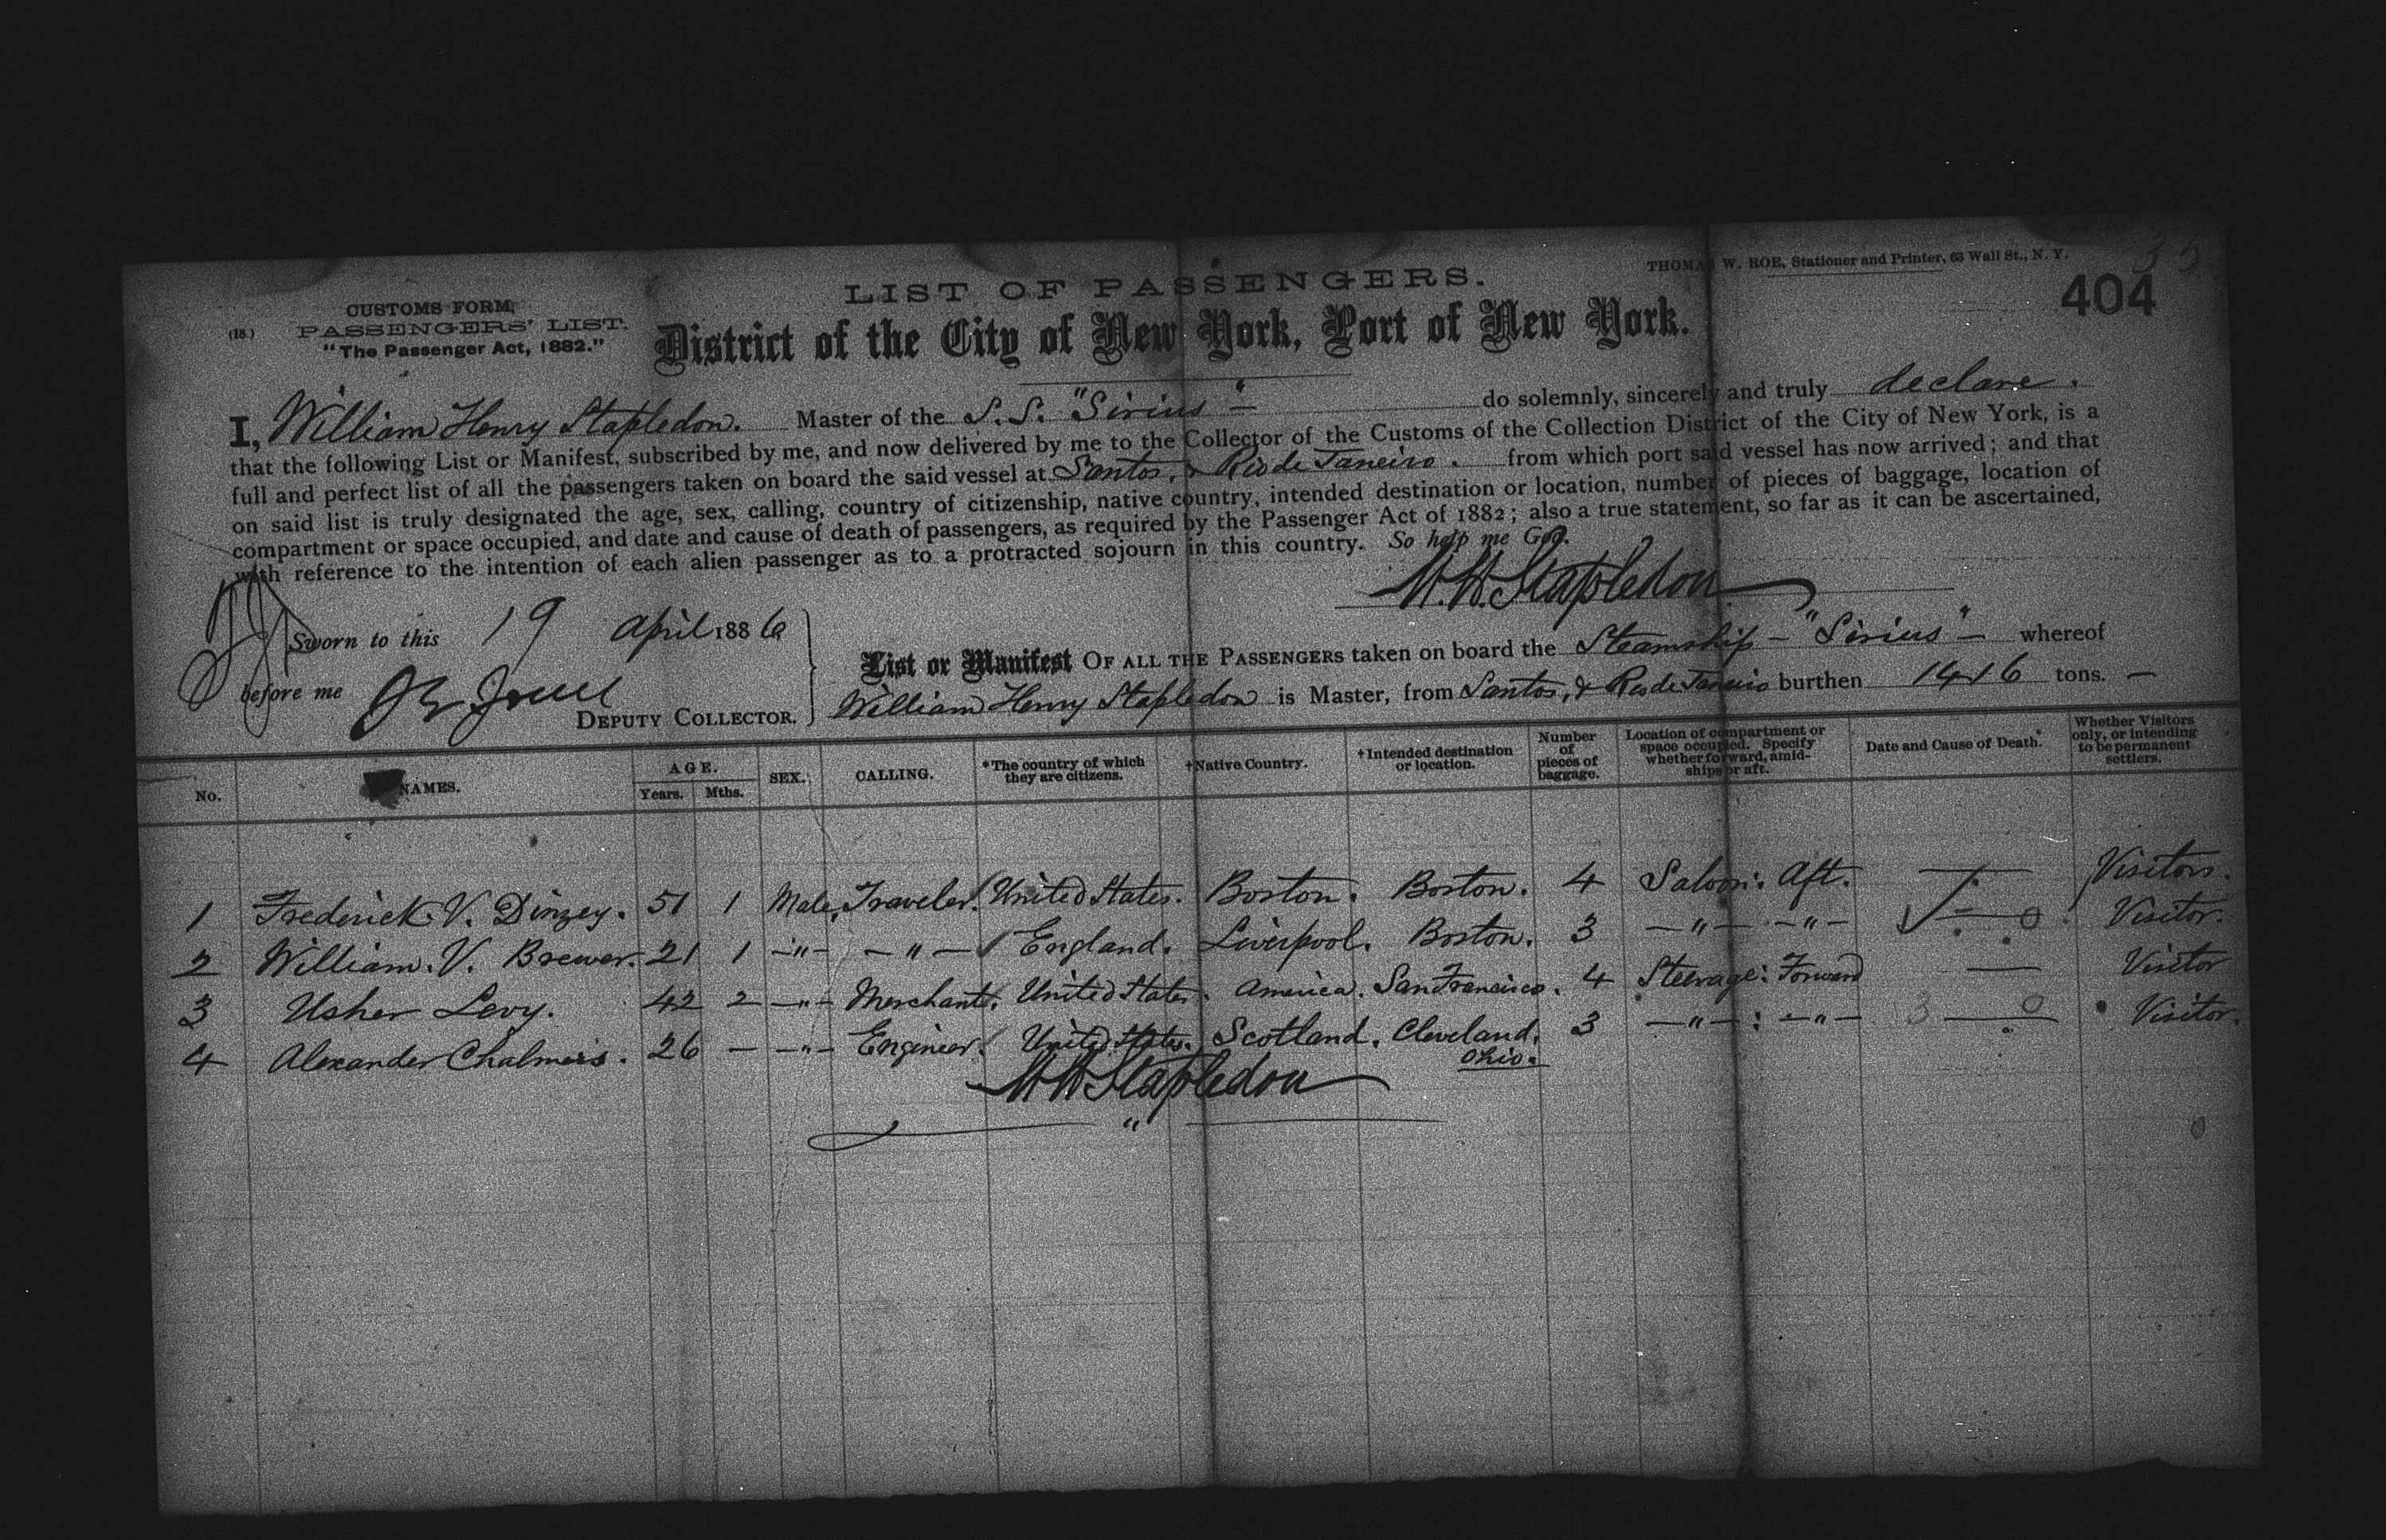 THOMAS W. ROE, Stationer and Printer, 63 Wall St., N. Y.
35
404
LIST OF PASSENGERS.
(18.)
CUSTOMS FORM,
PASSENGERS' LIST.
"The Passenger Act, 1882."
District of the City of New York, Port of New York.
I, William Henry Stapledon. Master of the S. S. "Sirius" do solemnly, sincerely and truly declare.
that the following List or Manifest, subscribed by me, and now delivered by me to the Collector of the Customs of the Collection District of the City of New York, is a
full and perfect list of all the passengers taken on board the said vessel at Santos, & Rio de Janeiro. from which port said vessel has now arrived; and that
on said list is truly designated the age, sex, calling, country of citizenship, native country, intended destination or location, number of pieces of baggage, location of
compartment or space occupied, and date and cause of death of passengers, as required by the Passenger Act of 1882; also a true statement, so far as it can be ascertained,
with reference to the intention of each alien passenger as to a protracted sojourn in this country. So help me God.
W. H. Stapledon
Sworn to this 19 April 1886
before me
DEPUTY COLLECTOR.
List or Manifest OF ALL THE PASSENGERS taken on board the Steamship - "Sirius" - whereof
William Henry Stapledon is Master, from Santos, & Rio de Janeiro burthen 1416 tons. —
No. NAMES. AGE. Years. Mths. SEX. CALLING. *The country of which they are citizens. †Native Country. †Intended destination or location. Number of pieces of baggage. Location of compartment or space occupied. Specify whether forward, amidships or aft. Date and Cause of Death.* Whether Visitors only, or intending to be permanent settlers.
1 Frederick. V. Dinzey. 51 1 Male. Traveler. United States. Boston. Boston. 4 Saloon: Aft. — Visitors.
2 William. V. Brewer. 21 1 -"- -"- England. Liverpool. Boston. 3 -"- -"- — Visitor.
3 Usher Levy. 42 2 -"- Merchant. United States. America. San Francisco. 4 Steerage: Forward — Visitor
4 Alexander Chalmers. 26 - -"- Engineer. United States. Scotland. Cleveland. Ohio. 3 -"-: -"- — Visitor.
W H Stapledon
"